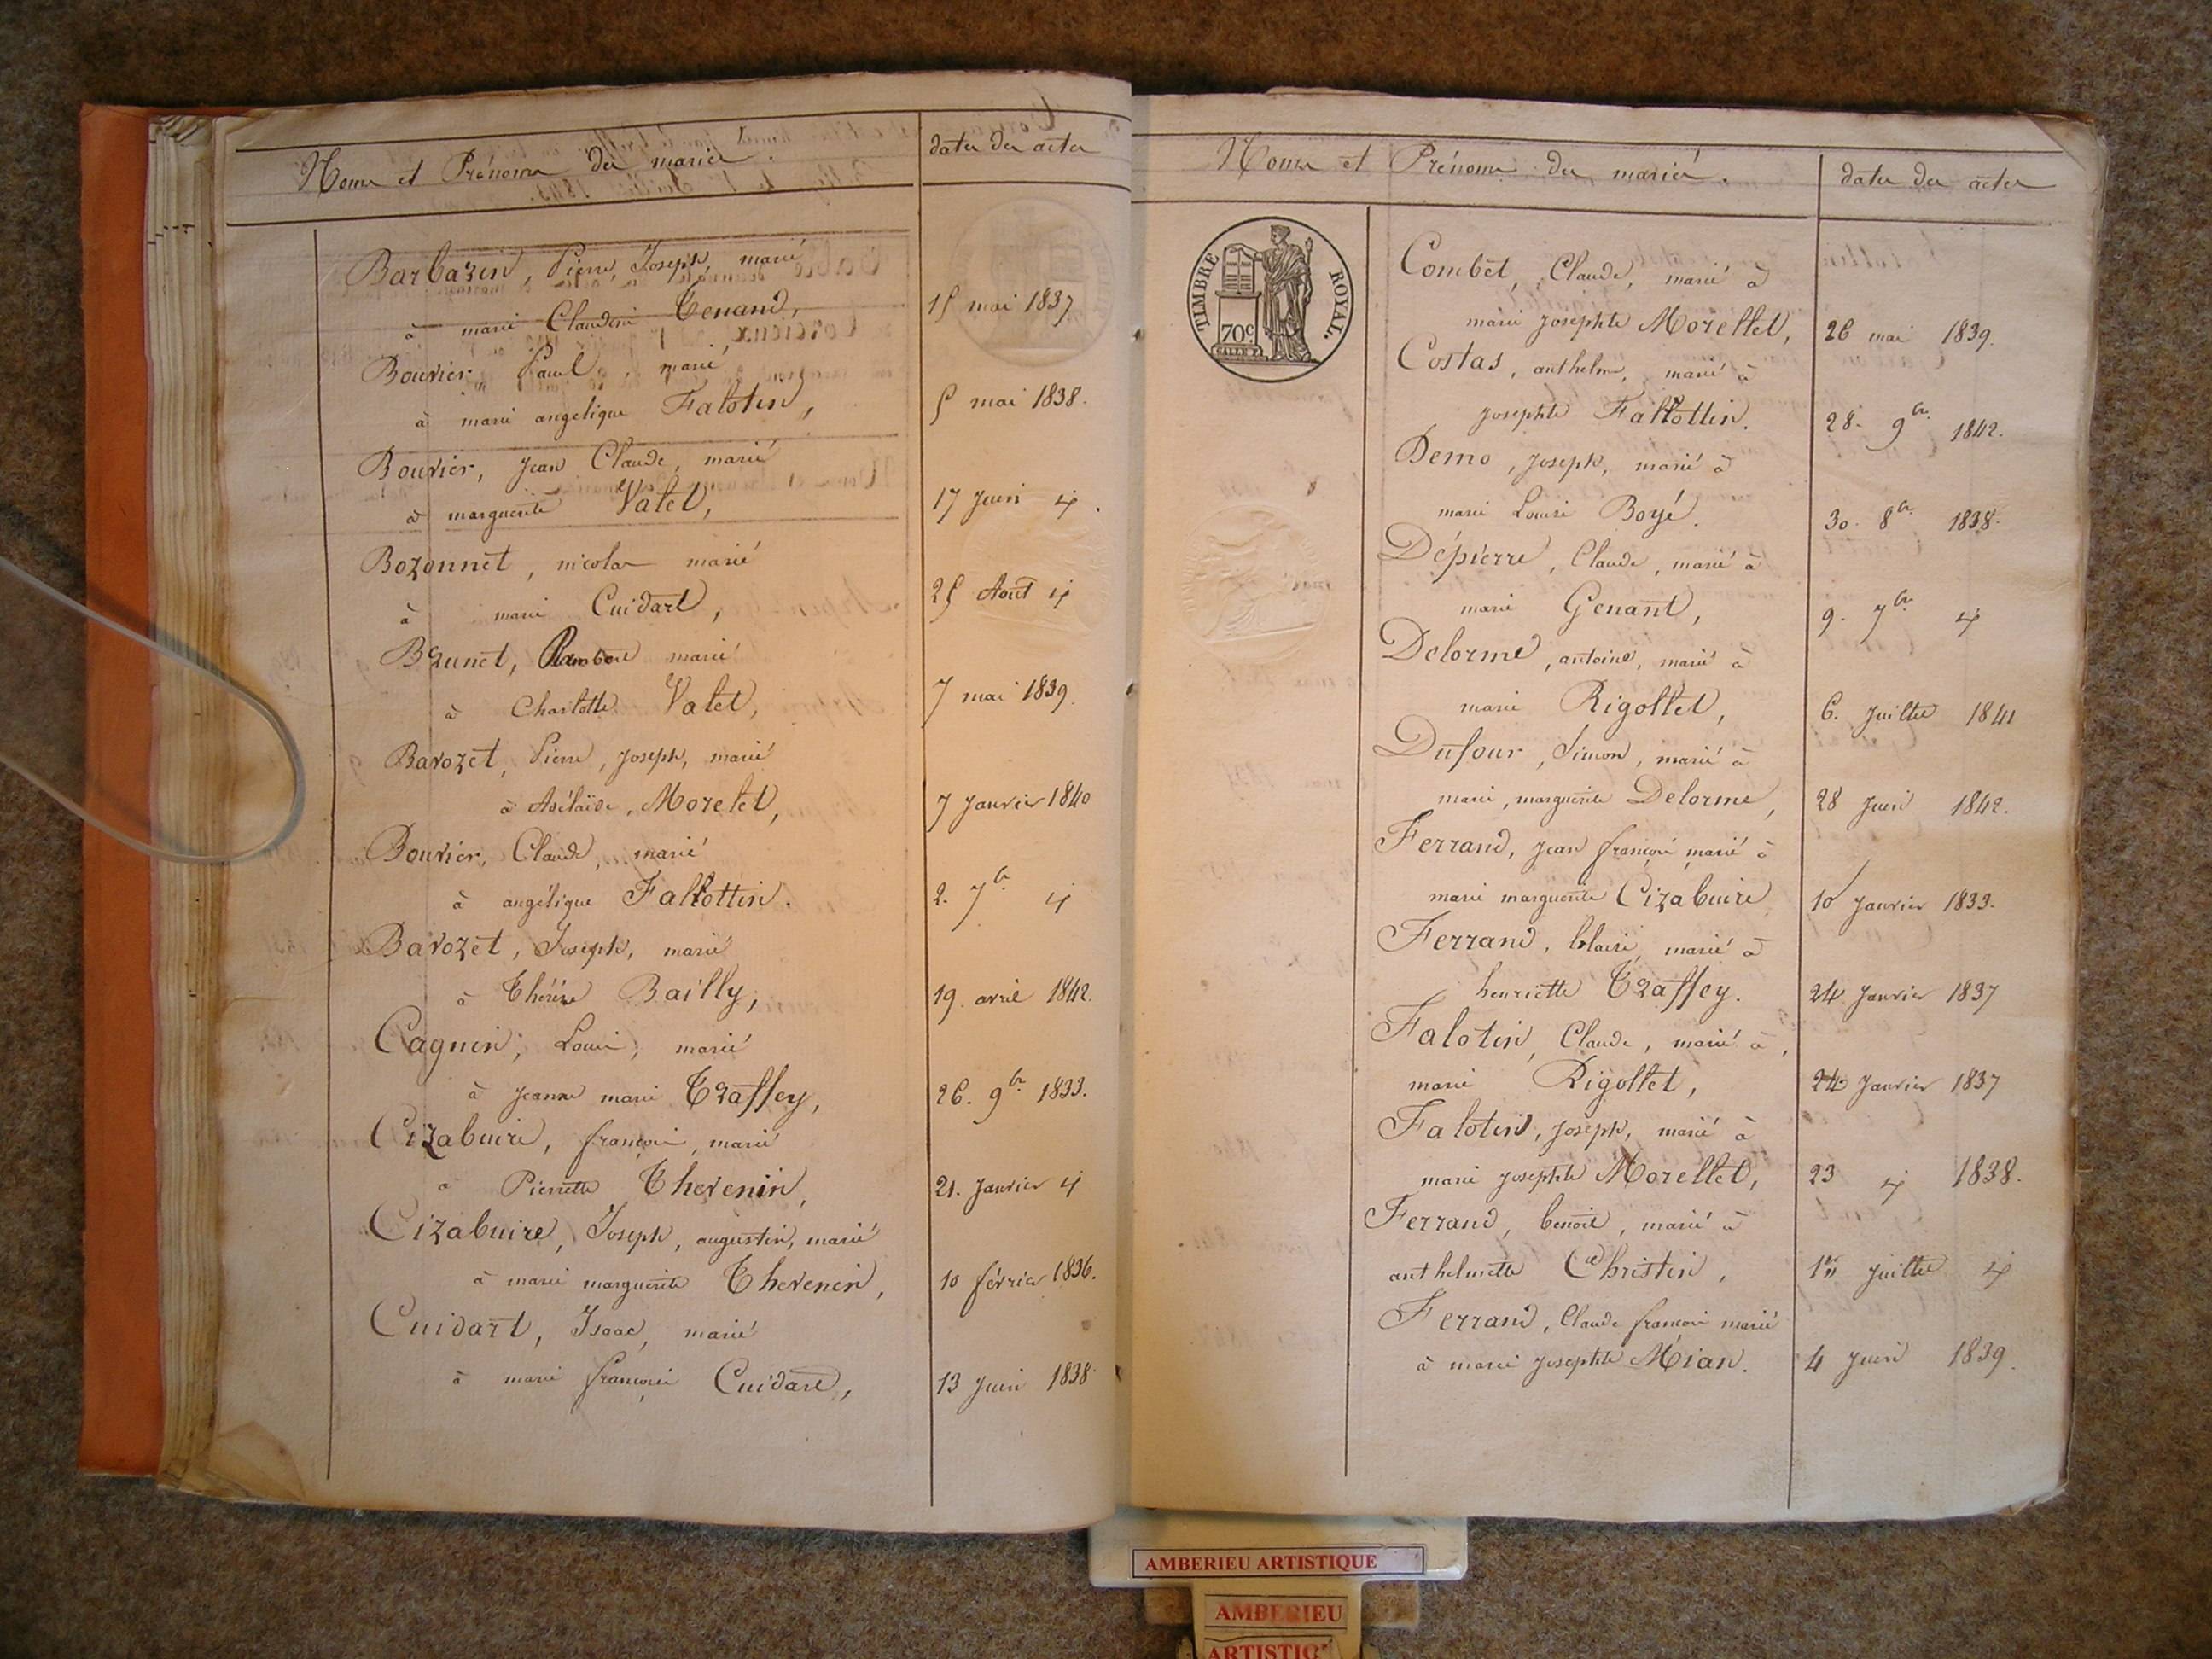 Noms et Prénoms des mariés. dates des actes
Barbarin, Pierre, Joseph, marié
à marie Claudine Tenand, 15 mai 1837
Bouvier Paul, marié
à marie angelique Falotin, 5 mai 1838.
Bouvier, Jean Claude, marié
à marguerite Valet, 17 Juin id.
Bozonnet, nicolas marié
à marie Cuidart, 25 Août id
Brunet, marié
à Charlotte Valet, 7 mai 1839.
Barozet, Pierre, Joseph, marié
à Adélaïde, Morelet, 7 Janvier 1840
Bouvier, Claude, marié
à angélique Fallottin. 2. 7bre id
Barozet, Joseph, marié
à Thérèse Bailly, 19. avril 1842.
Cagnin, Louis, marié
à Jeanne marie Traffey, 26. 9bre 1833.
Cizabuire, françois, marié
à Pierrette Thevenin, 21. Janvier id
Cizabuire, Joseph, augustin, marié
à marie marguerite Thevenin, 10 février 1836.
Cuidart, Isaac, marié
à marie françoise Cuidart, 13 Juin 1838.
Noms et Prénoms des mariés. dates des actes
TIMBRE ROYAL.
70c
Combet, Claude, marié à
marie josephte Morellet, 26 mai 1839.
Costas, anthelme, marié à
josephte Fallottin. 28. 9bre 1842.
Demo, Joseph, marié à
marie Louise Boyé. 30. 8bre 1838.
Dépierre, Claude, marié à
marie Genant, 9. 7bre id
Delorme, antoine, marié à
marie Rigollet, 6. Juillet 1841
Dufour, Simon, marié à
marie, marguerite Delorme, 28 Juin 1842.
Ferrand, Jean françois marié à
marie marguerite Cizabuire 10 Janvier 1833.
Ferrand, hlaire, marié à
henriette Traffey. 24 Janvier 1837
Falotin, Claude, marié à,
marie Rigollet, 24 Janvier 1837
Falotin, Joseph, marié à
marie josephte Morellet, 23 id 1838.
Ferrand, benoit, marié à
anthelmette Christin, 1er Juillet id
Ferrand, Claude françois marié
à marie josephte Mian. 4 Juin 1839.
AMBERIEU ARTISTIQUE
AMBERIEU
ARTISTIQ